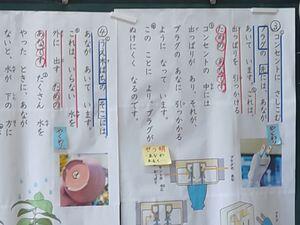 ③コンセントに さしこむ
プラグの 先には、あなが
あいて います。これは、
出っぱりを 引っかける
ための あなです。
コンセントの 中には
出っぱりが あり、それが
プラグの あなに 引っかかる
ように なって います。
この ことに よりプラグが
ぬけにくく なるのです。
せつ明
④うえ木ばちの そこには、
あなが あいて います。
これは、いらない 水を
外に 出す ための
あなです。たくさん 水を
やった ときに、あなが
ないと 水が 下の 方に